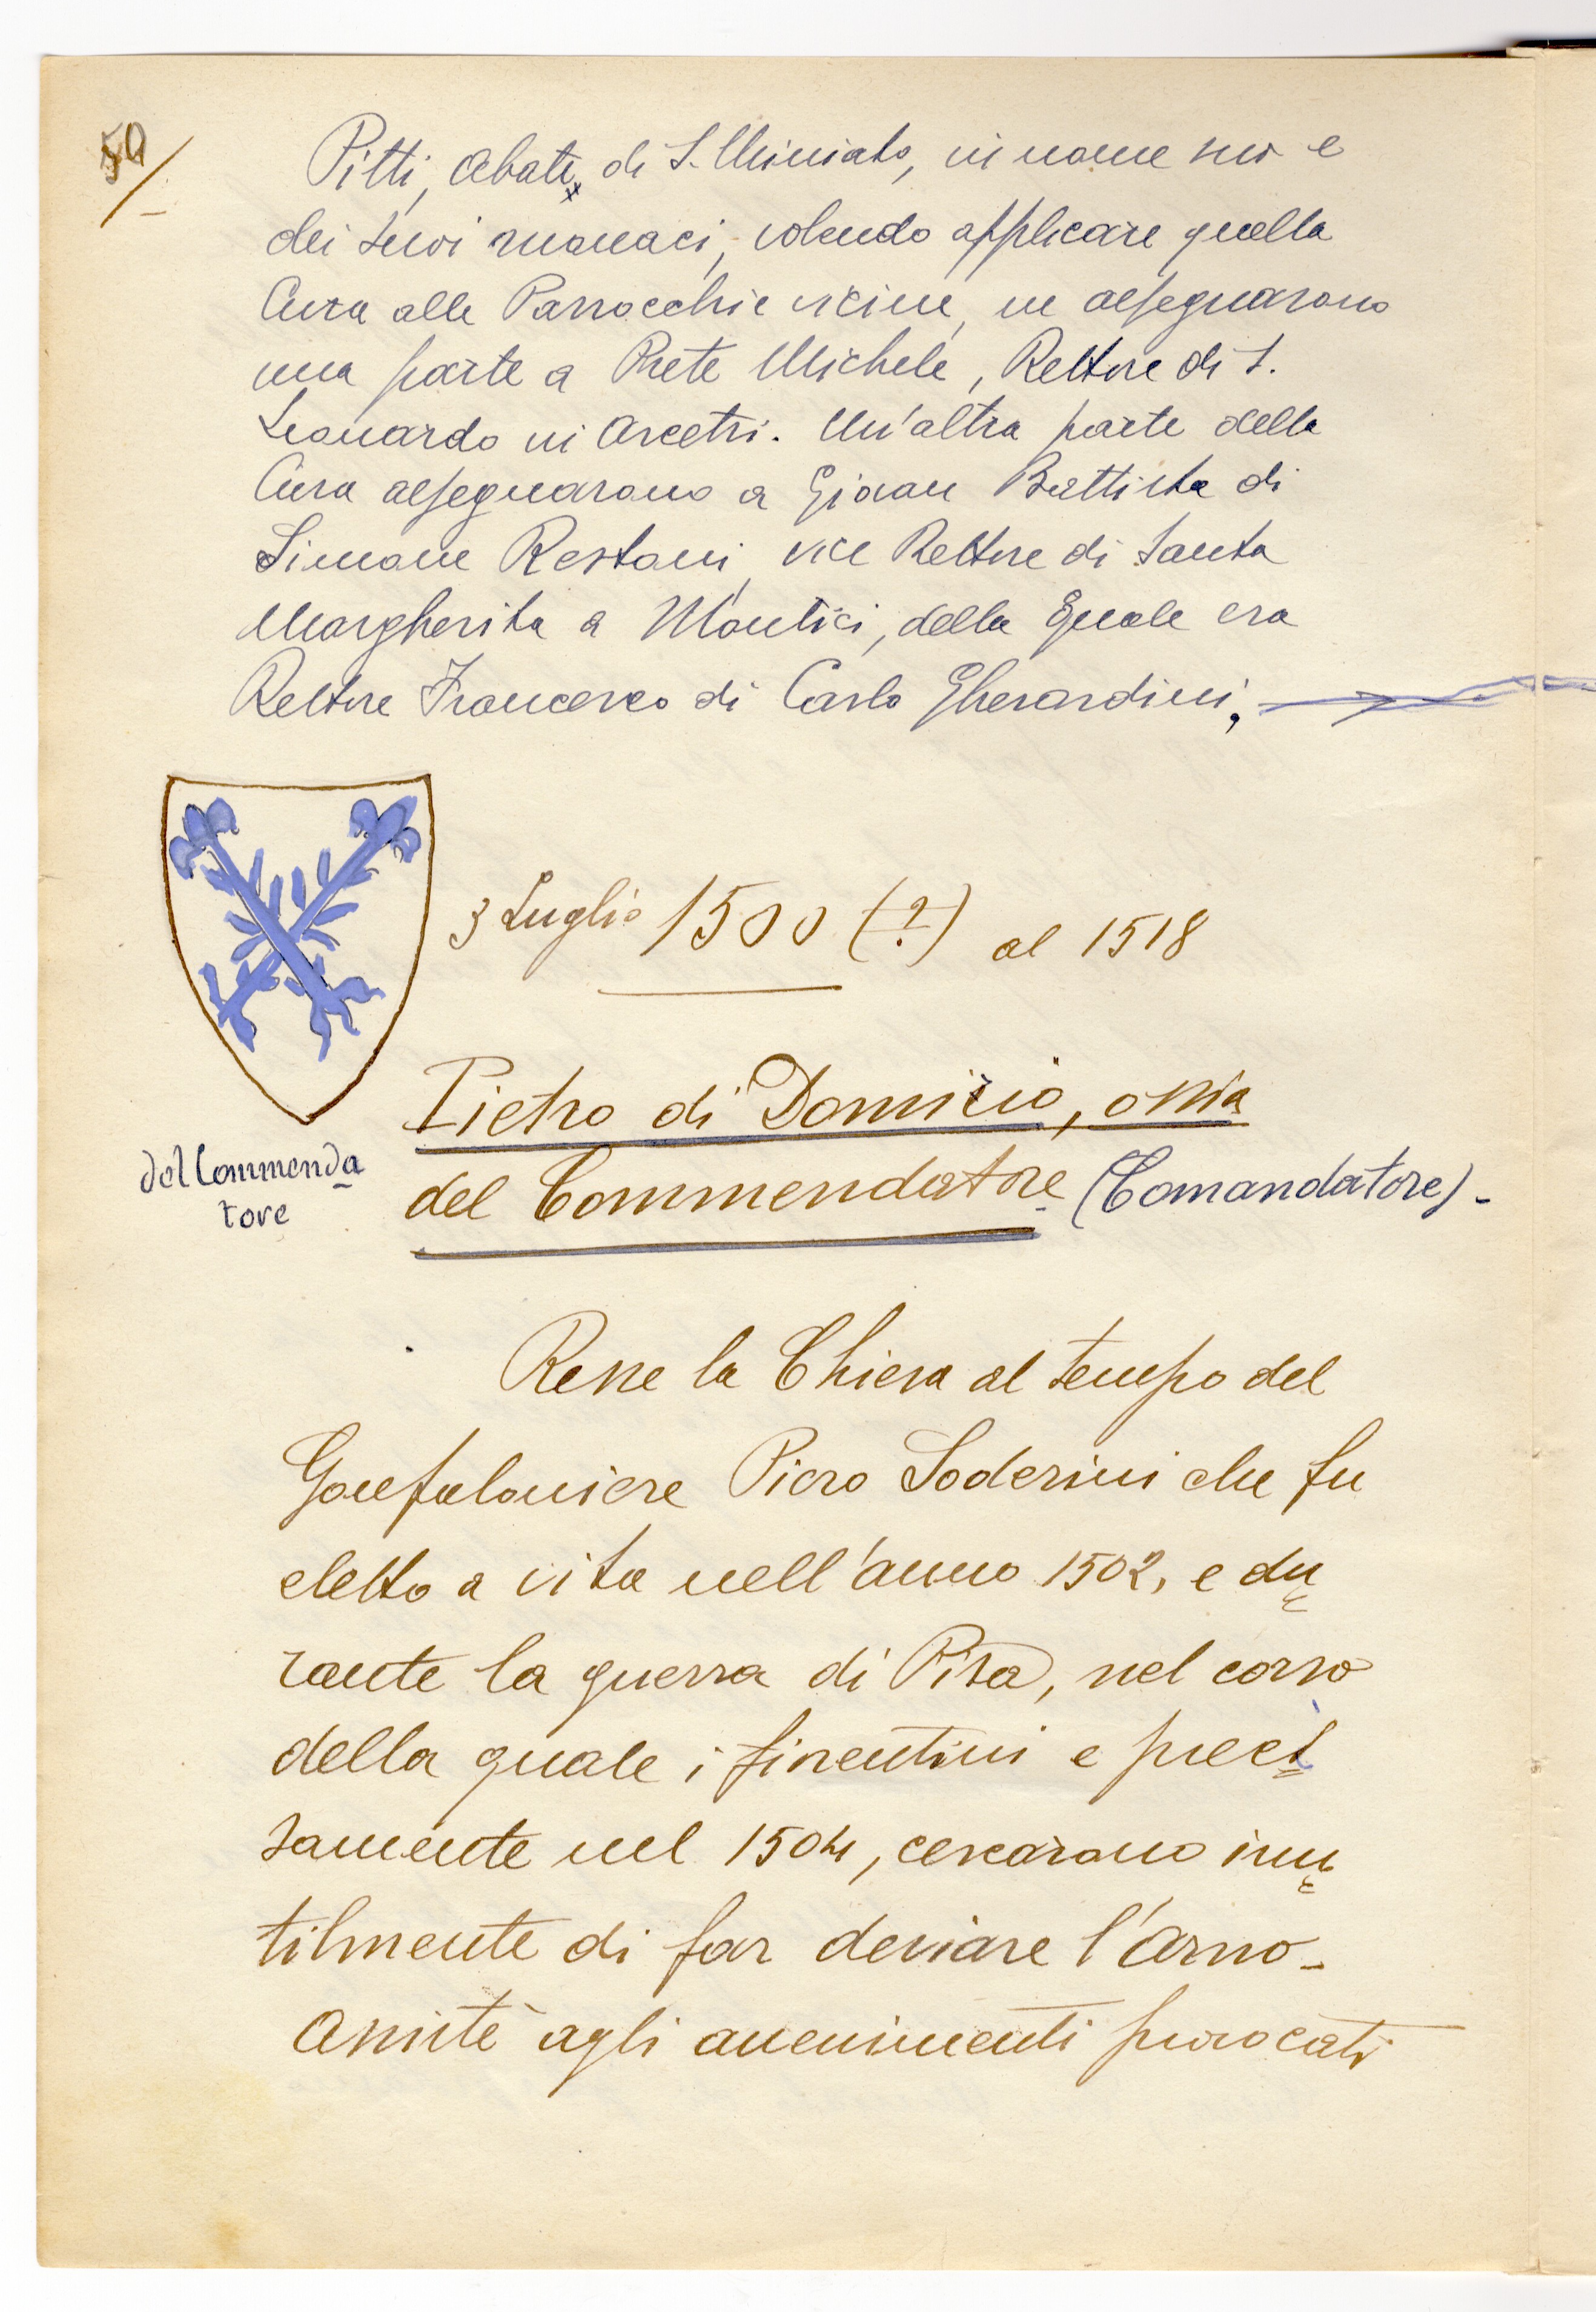 50
Pitti, Abate, di S. Miniato, in nome suo e
dei suoi monaci, volendo applicare quella
Cura alle Parrocchie vicine, ne assegnarono
una parte a Prete Michele, Rettore di S.
Leonardo in Arcetri. Un'altra parte della
Cura assegnarono a Giovan Battista di
Simone Restani, vice Rettore di Santa
Margherita a Montici, della quale era
Rettore Francesco di Carlo Gherardini,
3 Luglio 1500 (?) al 1518
Pietro di Domizio, ossia
del Commendatore (Comandatore) -
del Commenda
tore
Resse la Chiesa al tempo del
Gonfaloniere Piero Soderini che fu
eletto a vita nell'anno 1502, e du
rante la guerra di Pisa, nel corso
della quale i fiorentini e preci
samente nel 1504, cercarono inu
tilmente di far deviare l'Arno -
Assistè agli avvenimenti provocati